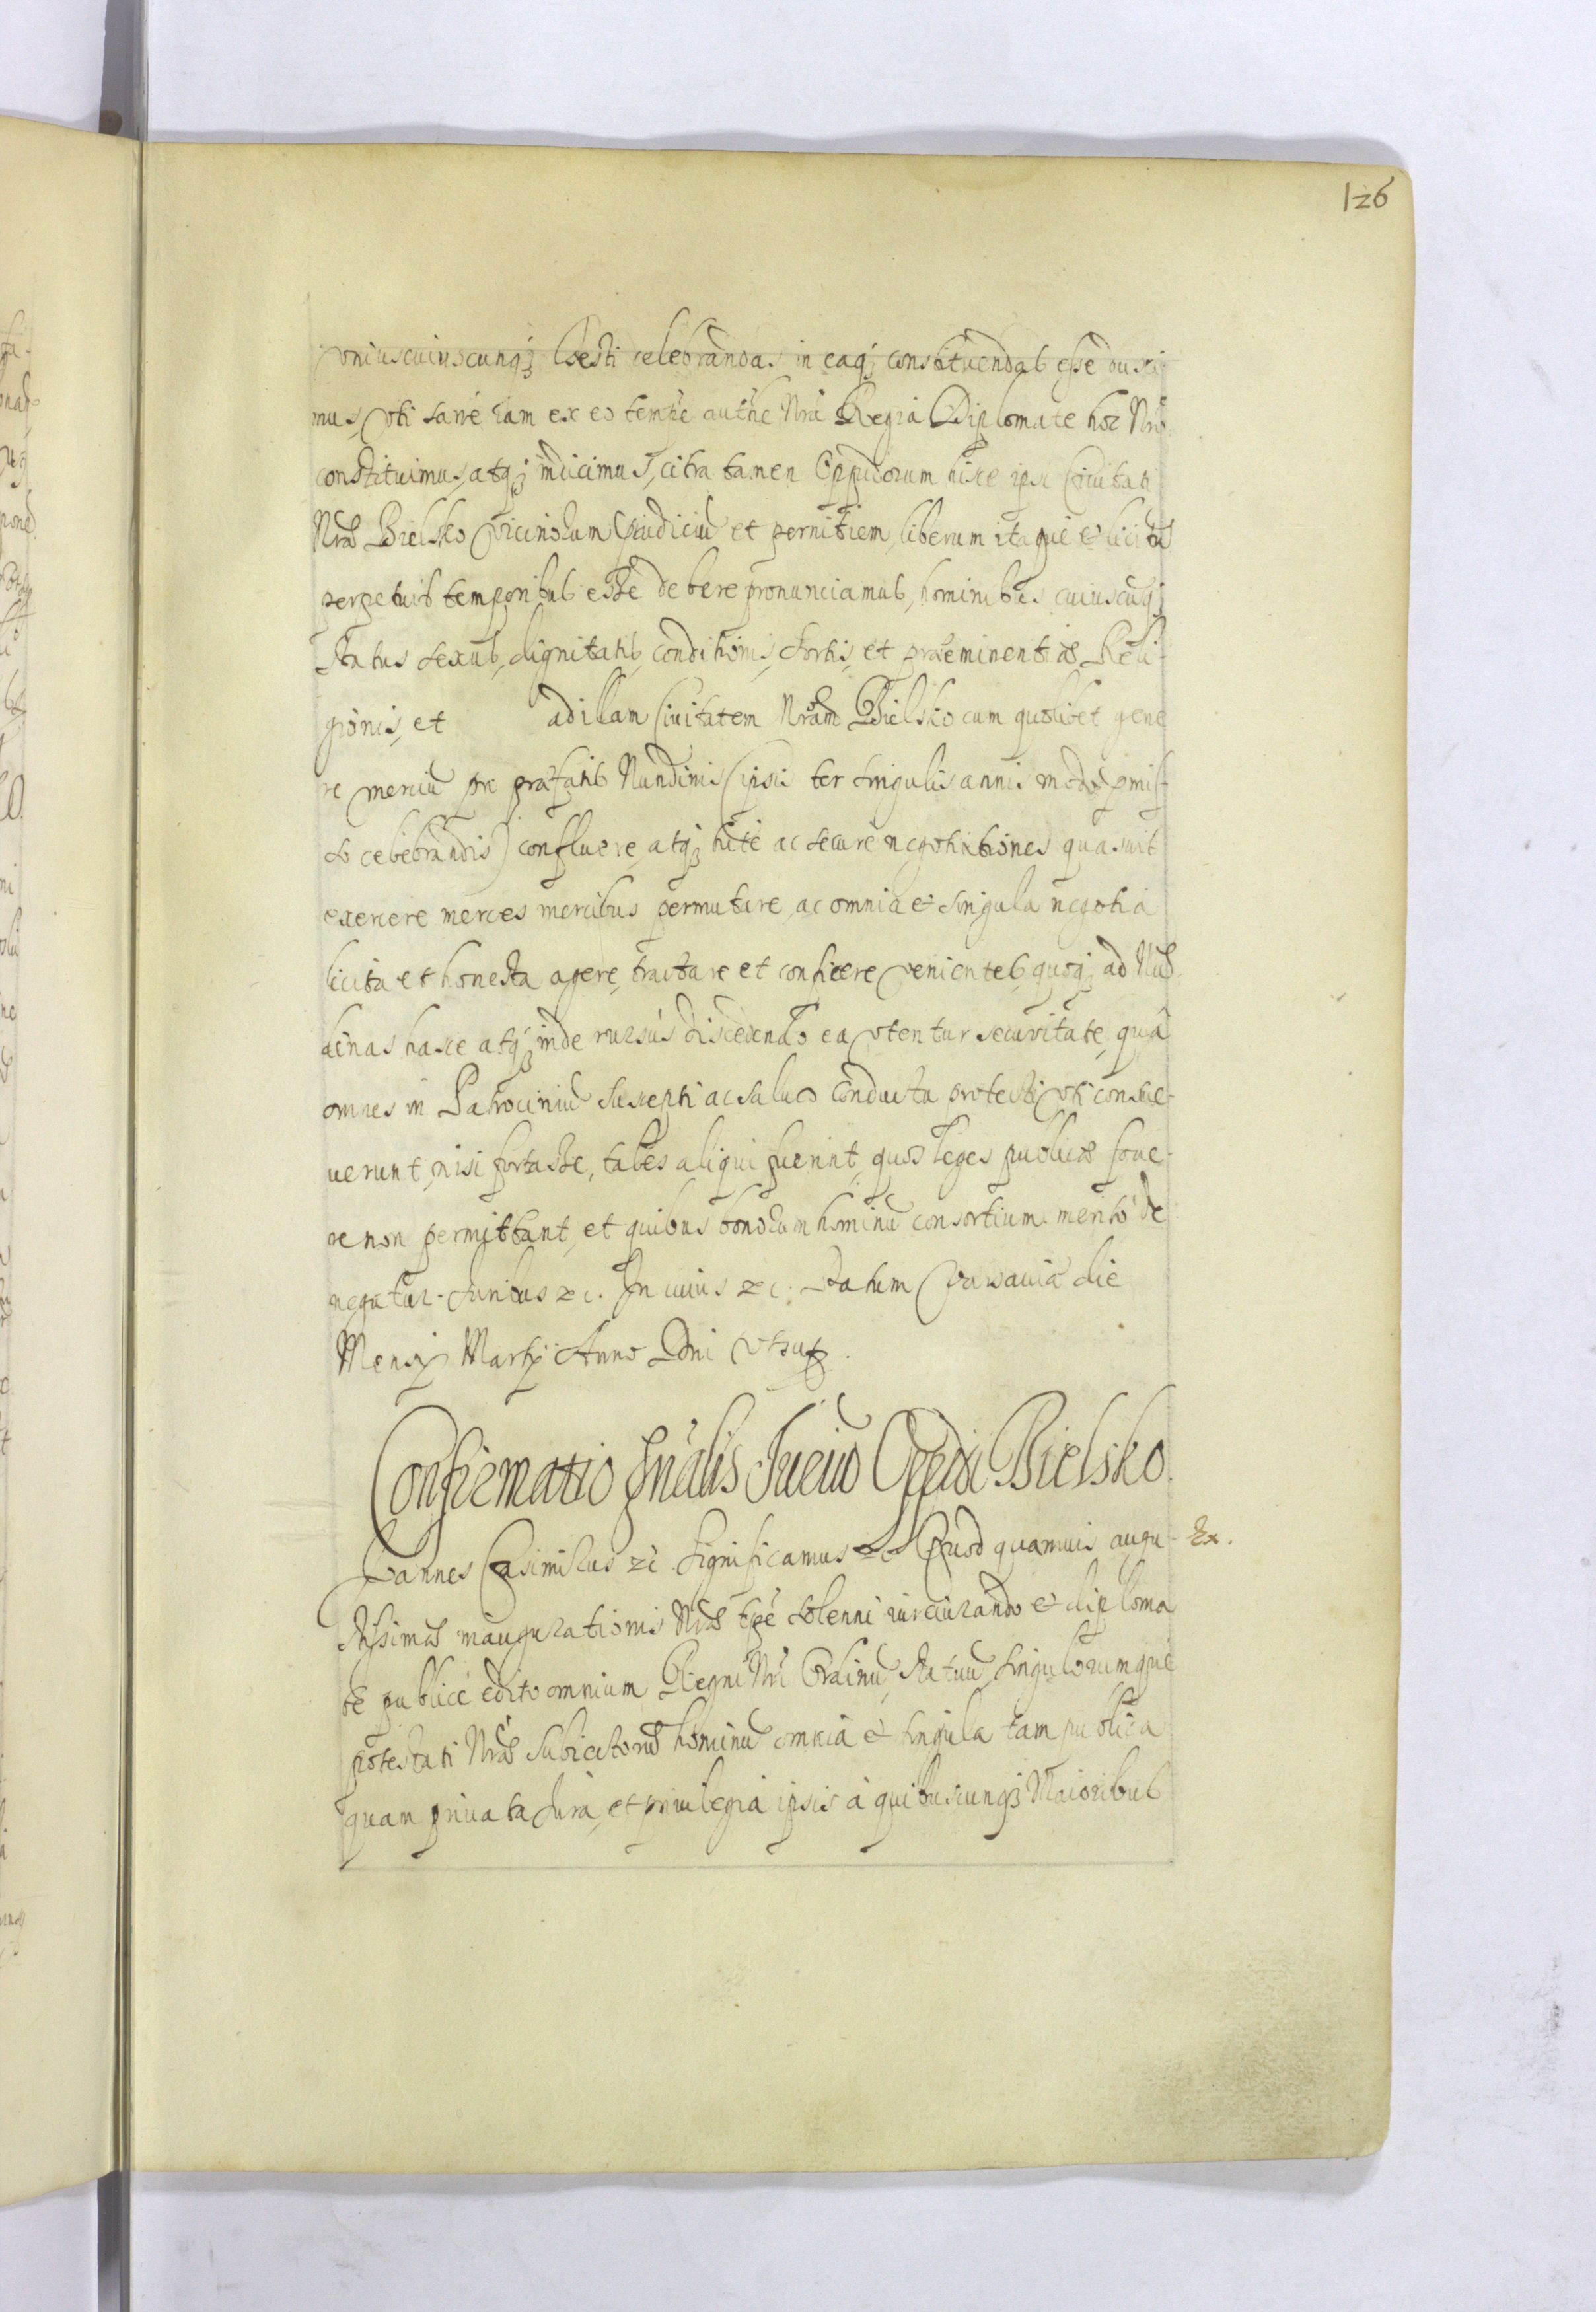 126
vniuscuiuscunq; Festi celebrandas in eaq; constituendas esse duxi
mus, vti sané iam ex eo tempre authte Nrã Regia Diplomate hoc Nrõ
constituimus, atq; indicimus, citra tamen Oppidorum hisce ipsi Ciuitati
Nræ Bielsko vicinorum Prudiciũ et pernitiem, liberum itaque & licitũ
perpetuis temporibus esse debere pronunciamus, hominibus cuiuscuq;
Status sexus, dignitatis, conditionis, sortis, et præeminentiæ Reli-
gionis, et ad illam Ciuitatem Nram Bielsko cum quolibet gene
re merciũ pro præfatis Nundinis (ipsis ter singulis annis modo pmis-
so celebrandis) confluere, atq; tuté ac securé negotiationes quasuis
exercere merces mercibus permutare, ac omnia & singula negotia
licita et honesta agere, tractare et conficere venientes, quoq; ad Nũ-
dinas hasce atq; inde rursus discedendo ea vtentur securitate, quâ
omnes in Patrociniũ suscepti ac saluo conductu protecti vti consue-
uerunt, nisi fortasse, tales aliqui fuerint, quos leges publicæ foue-
re non permittant, et quibus bonorum hominũ consortium meritò de
negatur. Juribus &c. In cuius &c. Datum Varsauiæ die
Mensis Martij Anno Dni vtsup.
Confirmatio gnalis Juriũ Oppidi Bielsko.
Joannes Casimirus &c. Significamus &c. Quod quamuis augu- Ex.
stissimæ inaugurationis Nræ tpe solenni iureiurando & diploma
te publicé edito omnium Regni Nri Ordinũ, Statuũ, singulorumque
potestati Nræ subiectorũ hominũ omnia & singula tam publica
quam priuata Jura, et priuilegia ipsis à quibuscunq; Maioribus